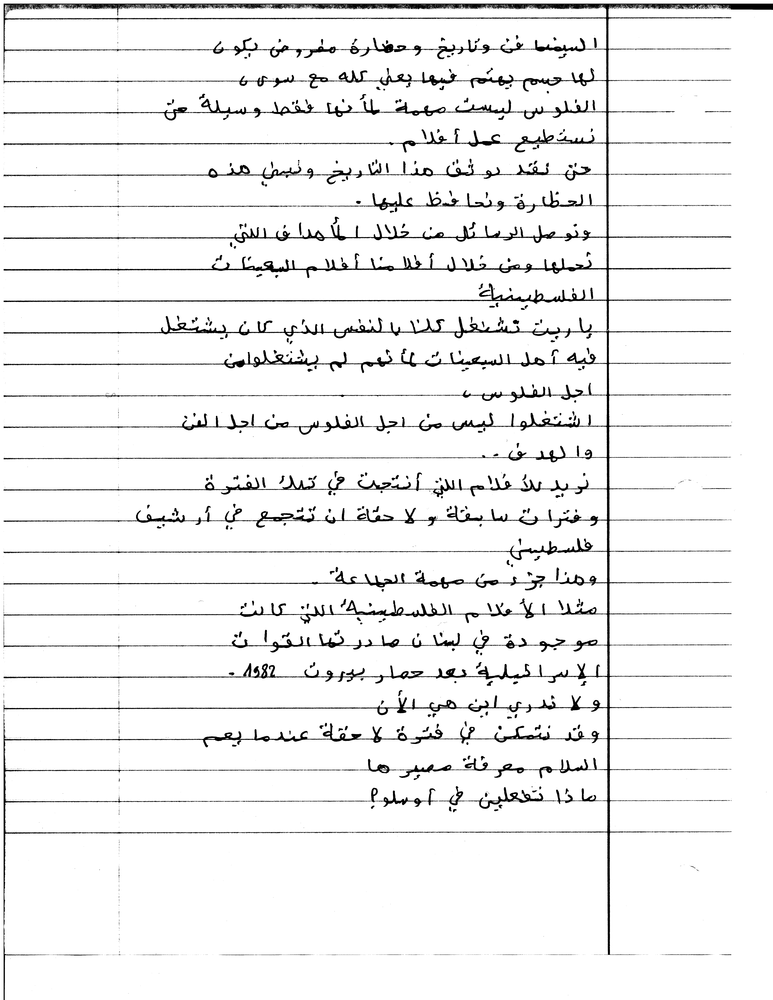 السينما فن وتاريخ وحضارة مفروض يكون
لها جسم يهتم فيها يعني كله مع سوى،
الفلوس ليست مهمة لأنها فقط وسيلة حتى
نستطيع عمل أفلام.
حتى نقدر نوثق هذا التاريخ ونبني هذه
الحظارة ونحافظ عليها.
ونوصل الرسائل من خلال الأهداف اللتي
نحملها ومن خلال أفلامنا أفلام السبعينات
الفلسطينية
ياريت تشتغل كلنا بالنفس الذي كان يشتغل
فيه أهل السبعينات لأنهم لم يشتغلوا من
اجل الفلوس،
اشتغلوا ليس من اجل الفلوس من اجل الفن
والهدف..
نريد للأفلام اللتي أنتجت في تلك الفترة
وفترات سابقة ولاحقة ان تتجمع في أرشيف
فلسطيني
وهذا جزء من مهمة الجماعة.
مثلا الأفلام الفلسطينية اللتي كانت
موجودة في لبنان صادرتها القوات
الإسرائيلية بعد حصار بيروت 1982.
ولا ندري اين هي الأن
وقد نتمكن في فترة لاحقة عندما يعم
السلام معرفة مصيرها
ماذا تفعلين في أوسلو؟